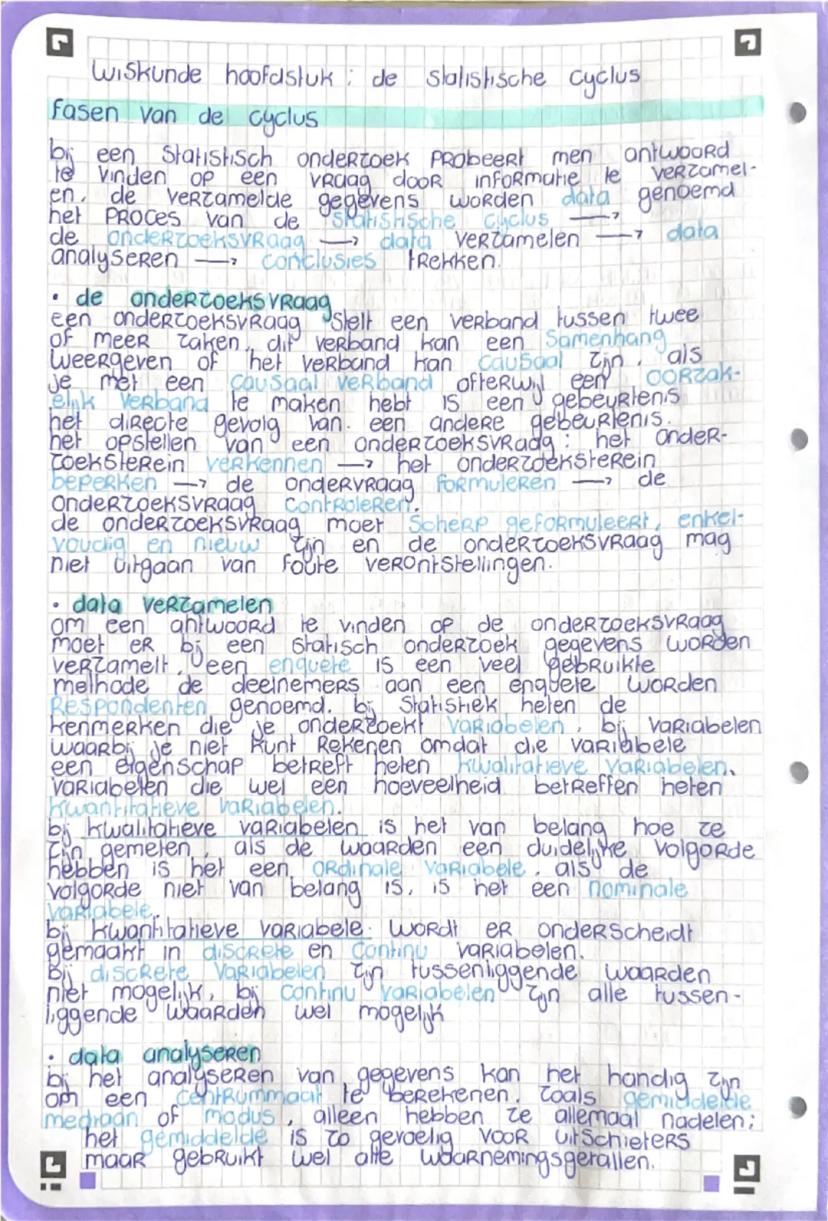 wiskunde hoofdstuk : de statistische cyclus
fasen van de cyclus
bij een statistisch onderzoek probeert men antwoord
te vinden op een vraag door informatie te verzamel-
en. de verzamelde gegevens worden data genoemd
het proces van de statistische cyclus →
de onderzoeksvraag → data verzamelen → data
analyseren → conclusies trekken.
• de onderzoeksvraag
een onderzoeksvraag stelt een verband tussen twee
of meer zaken. dit verband kan een samenhang
weergeven of het verband kan causaal zijn. als
je met een causaal verband ofterwijl een oorzak-
elijk verband te maken hebt is een gebeurtenis
het directe gevolg van een andere gebeurtenis.
het opstellen van een onderzoeksvraag : het onder-
zoeksterein verkennen → het onderzoeksterein
beperken → de ondervraag formuleren → de
onderzoeksvraag controleren.
de onderzoeksvraag moet scherp geformuleert, enkel-
voudig en nieuw zijn en de onderzoeksvraag mag
niet uitgaan van foute verontstellingen.
• data verzamelen
om een antwoord te vinden op de onderzoeksvraag
moet er bij een statisch onderzoek gegevens worden
verzamelt. een enquete is een veel gebruikte
methode de deelnemers aan een enquete worden
respondenten genoemd. bij statistiek heten de
kenmerken die je onderzoekt variabelen. bij variabelen
waarbij je niet kunt rekenen omdat die variabele
een eigenschap betreft heten kwalitatieve variabelen.
variabelen die wel een hoeveelheid betreffen heten
kwantitatieve variabelen.
bij kwalitatieve variabelen is het van belang hoe ze
zijn gemeten. als de waarden een duidelijke volgorde
hebben is het een ordinale variabele. als de
volgorde niet van belang is, is het een nominale
variabele.
bij kwantitatieve variabele wordt er onderscheidt
gemaakt in discrete en continu variabelen.
Bij discrete variabelen zijn tussenliggende waarden
niet mogelijk, bij continu variabelen zijn alle tussen-
liggende waarden wel mogelijk
• data analyseren
bij het analyseren van gegevens kan het handig zijn
om een centrummaat te berekenen. zoals gemiddelde
mediaan of modus, alleen hebben ze allemaal nadelen;
het gemiddelde is zo gevoelig voor uitschieters
maar gebruikt wel alle waarnemingsgetallen.